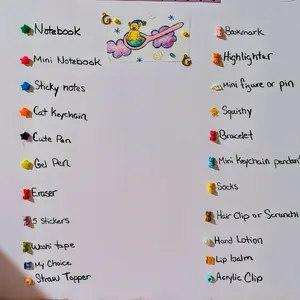 Notebook
Mini Notebook
Sticky notes
Cat Keychain
Cute Pen
Gel Pen
Eraser
5 Stickers
Washi tape
My Choice
Straw Topper
Bookmark
Highlighter
Mini figure or pin
Squishy
Bracelet
Mini Keychain pendant
Socks
Hair Clip or Scrunchi
Hand Lotion
Lip balm
Acrylic Clip